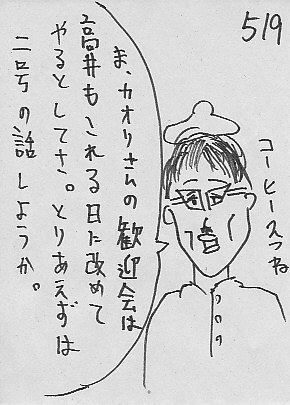 519
ま、カオリさんの歓迎会は
高井もこれる日に改めて
やるとしてさ。とりあえずは
二号の話しようか。
コーヒー二つね